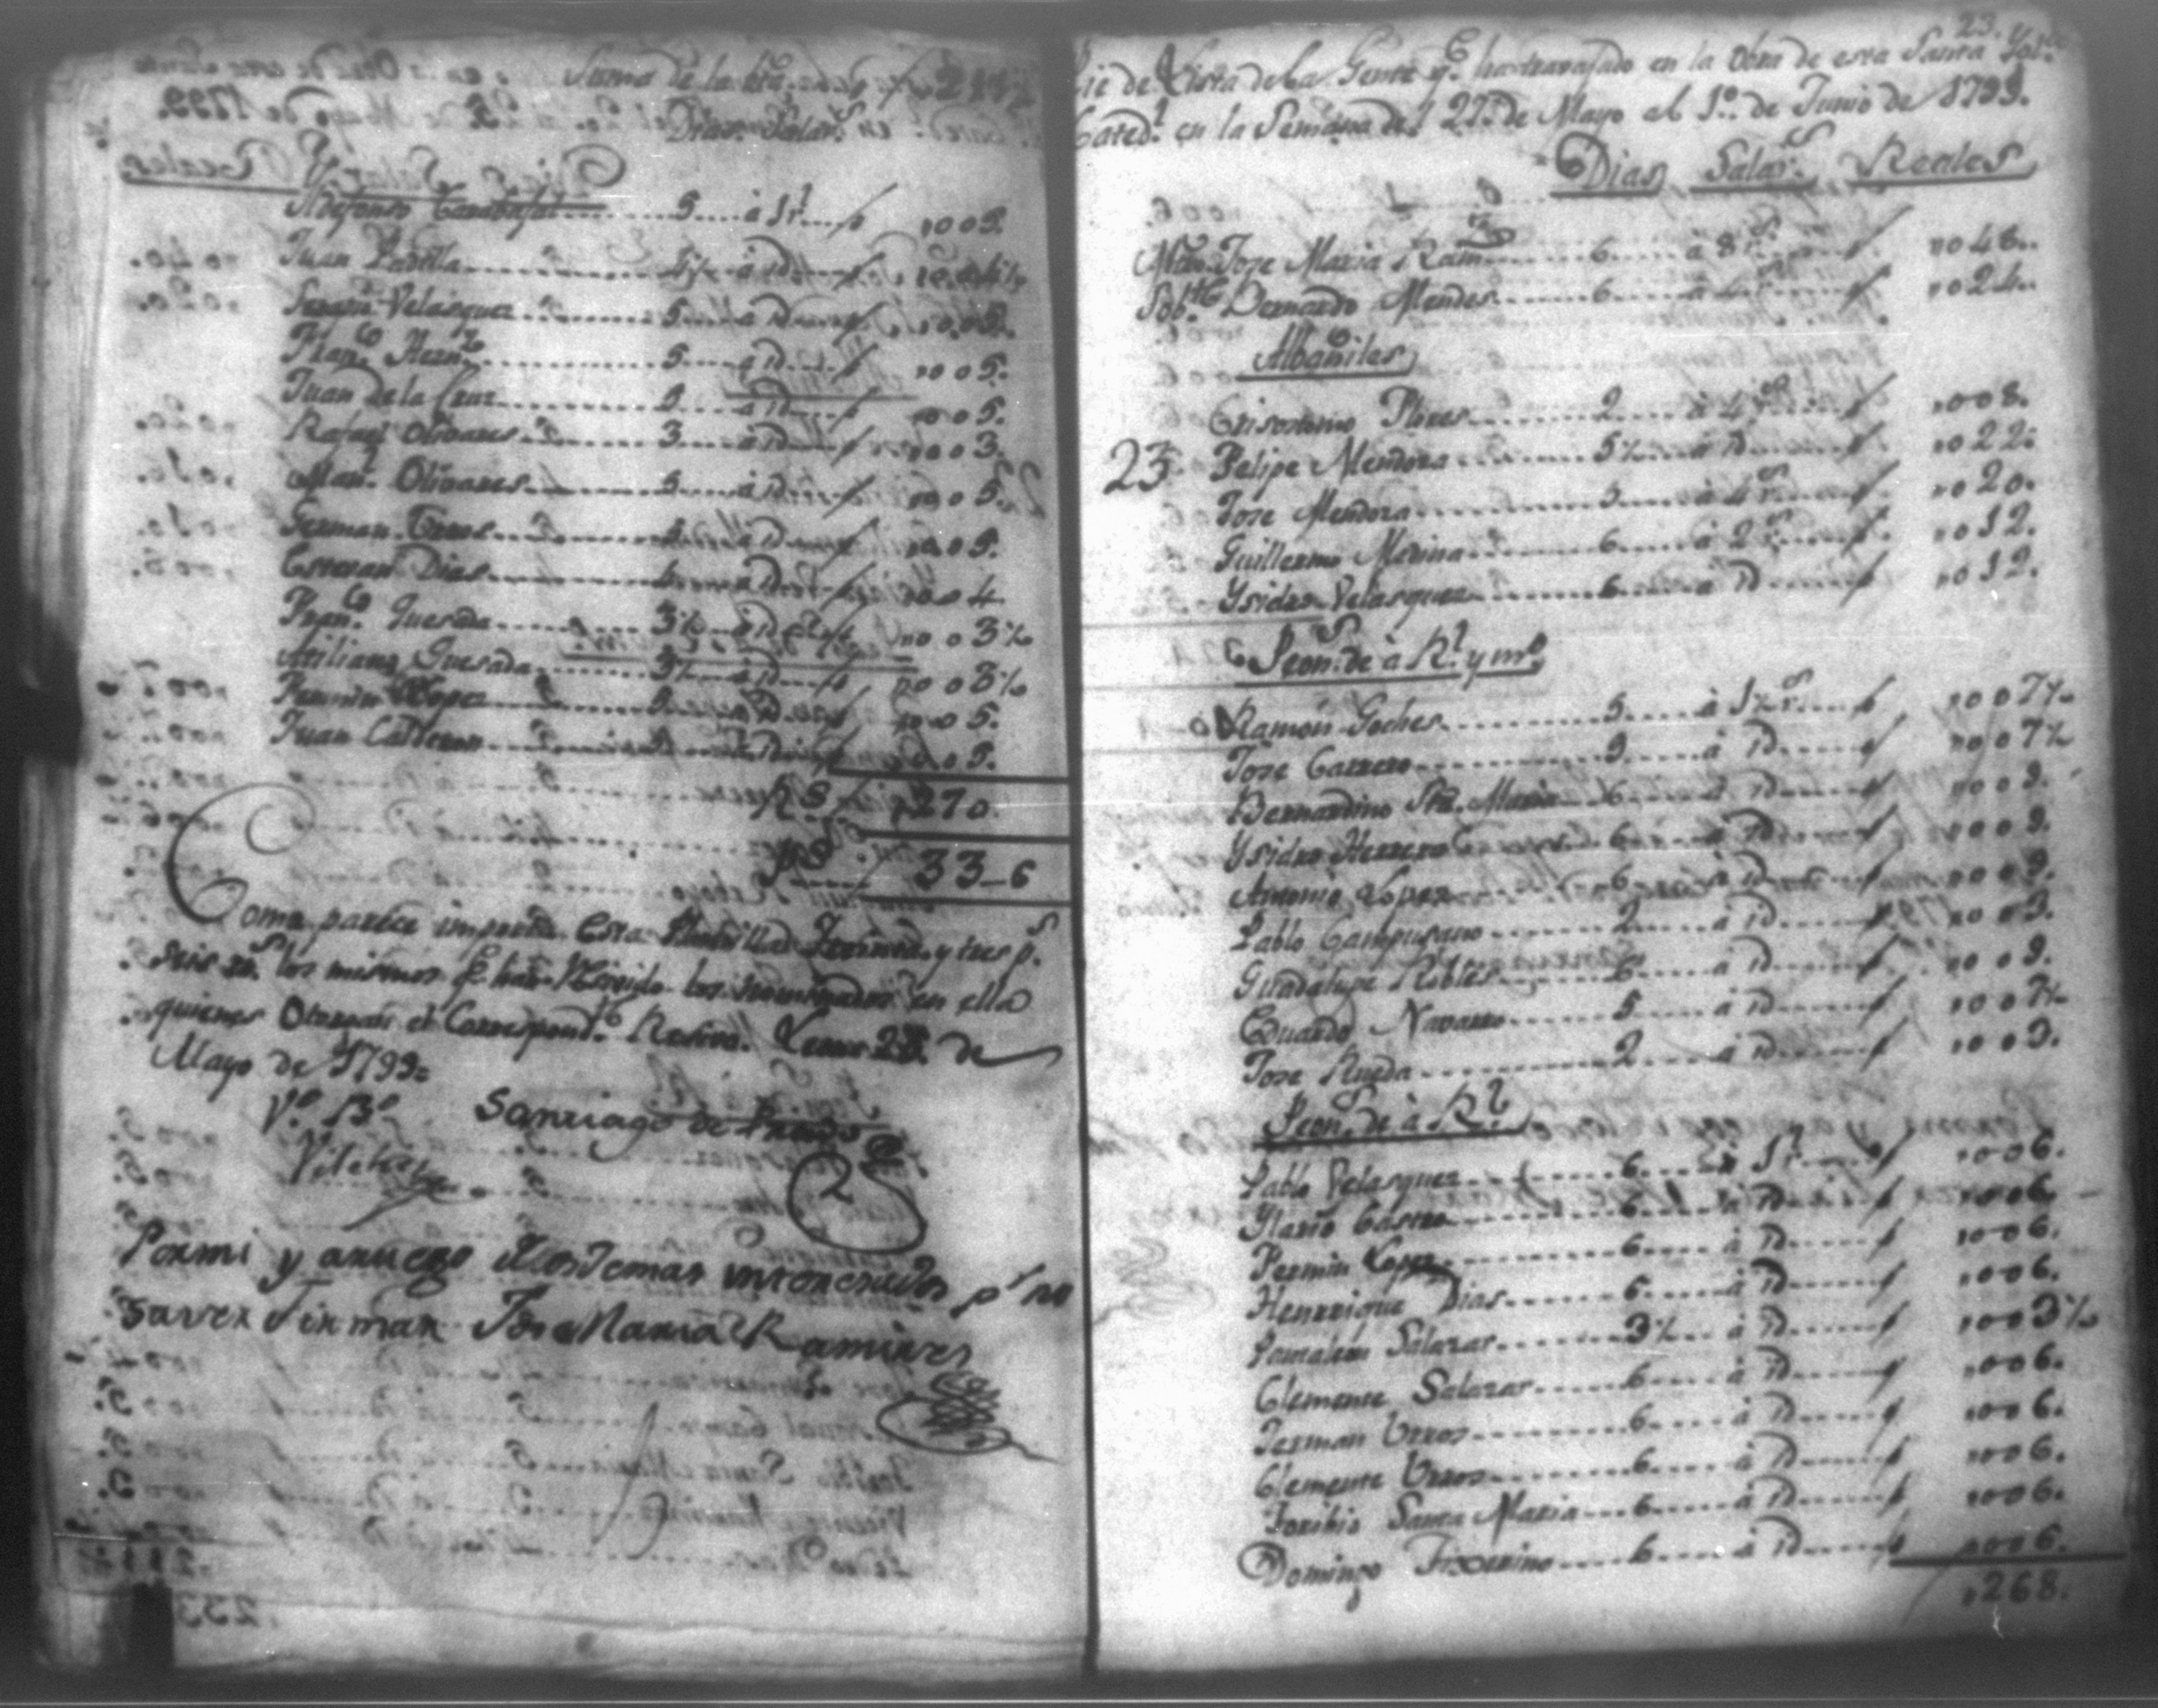 Suma de la bta.
Dias. Salars.
Ildefonso 5 à 1 rl. 005.
Juan Padilla à id
Velasquez 5 à id 005.
Franco. Hernz. 5 à id 005.
Juan de la Cruz 5 à id 005.
Rafael Olivares 3 à id 003.
Man. Olivares 5 à id 005.
German Orros 5 à id 005.
Estevan Dias 4 à id 004
Franco. Quesada 3½ à id 003½
Atiliano Quesada 3½ à id 003½
Fermin Lopez 5 à id 005.
Juan Calderon 5 à id 005.
RS 270.
pS 33-6
Como parece importa esta Treinta y tres ps.
seis rs. los mismos qe. han Recivido los en ella
quienes Otorgan el Correspondte. Recivo. 25. de
Mayo de 1799=
Vo. Bo. Santiago de
Vilchez
Por mi y a ruego de los demas pr. no
saver firmar Jose Maria Ramires
23.
de Lista de la Gente qe. ha travajado en la Obra de esta Santa Ygla.
Cated.l en la Semana del 27. de Mayo al 1o. de Junio de 1799.
Dias Salars. Reales
Mtro. Jose Maria Ramz. 6 à 8 rs. 048.
Sobte. Bernardo Mendes 6 à 4 rs. 024.
Albañiles
Crisostomo Flores 2 à 4 rs. 008.
23 Felipe Mendoza 5½ à id 022.
Jose Mendoza 5 à 4 rs. 020.
Guillermo Medina 6 à 2 rs. 012.
Ysidro Velasquez 6 à id 012.
Peons. de à Rl. y mo.
Ramon Goches 5 à 1½ rs. 007½
Jose Carrero 5 à id 007½
Bernardino Sta. Maria 6 à id 009.
Ysidro Herrero 6 à id 009.
Antonio Lopez 6 à id 009.
Pablo Campusano 2 à id 003.
Guadalupe Robles 6 à id 009.
Eduardo Navarro 5 à id 007½
Jose Rueda 2 à id 003.
Peons. de à Rl.
Pablo Velasquez 6 à 1 rl. 006.
Ylario Castro 6 à id 006.
Fermin Lopez 6 à id 006.
Henrrique Dias 6 à id 006.
Pantaleon Salazar 3½ à id 003½
Clemente Salazar 6 à id 006.
German Orros 6 à id 006.
Clemente Orros 6 à id 006.
Toribio Santa Maria 6 à id 006.
Domingo 6 à id 006.
268.